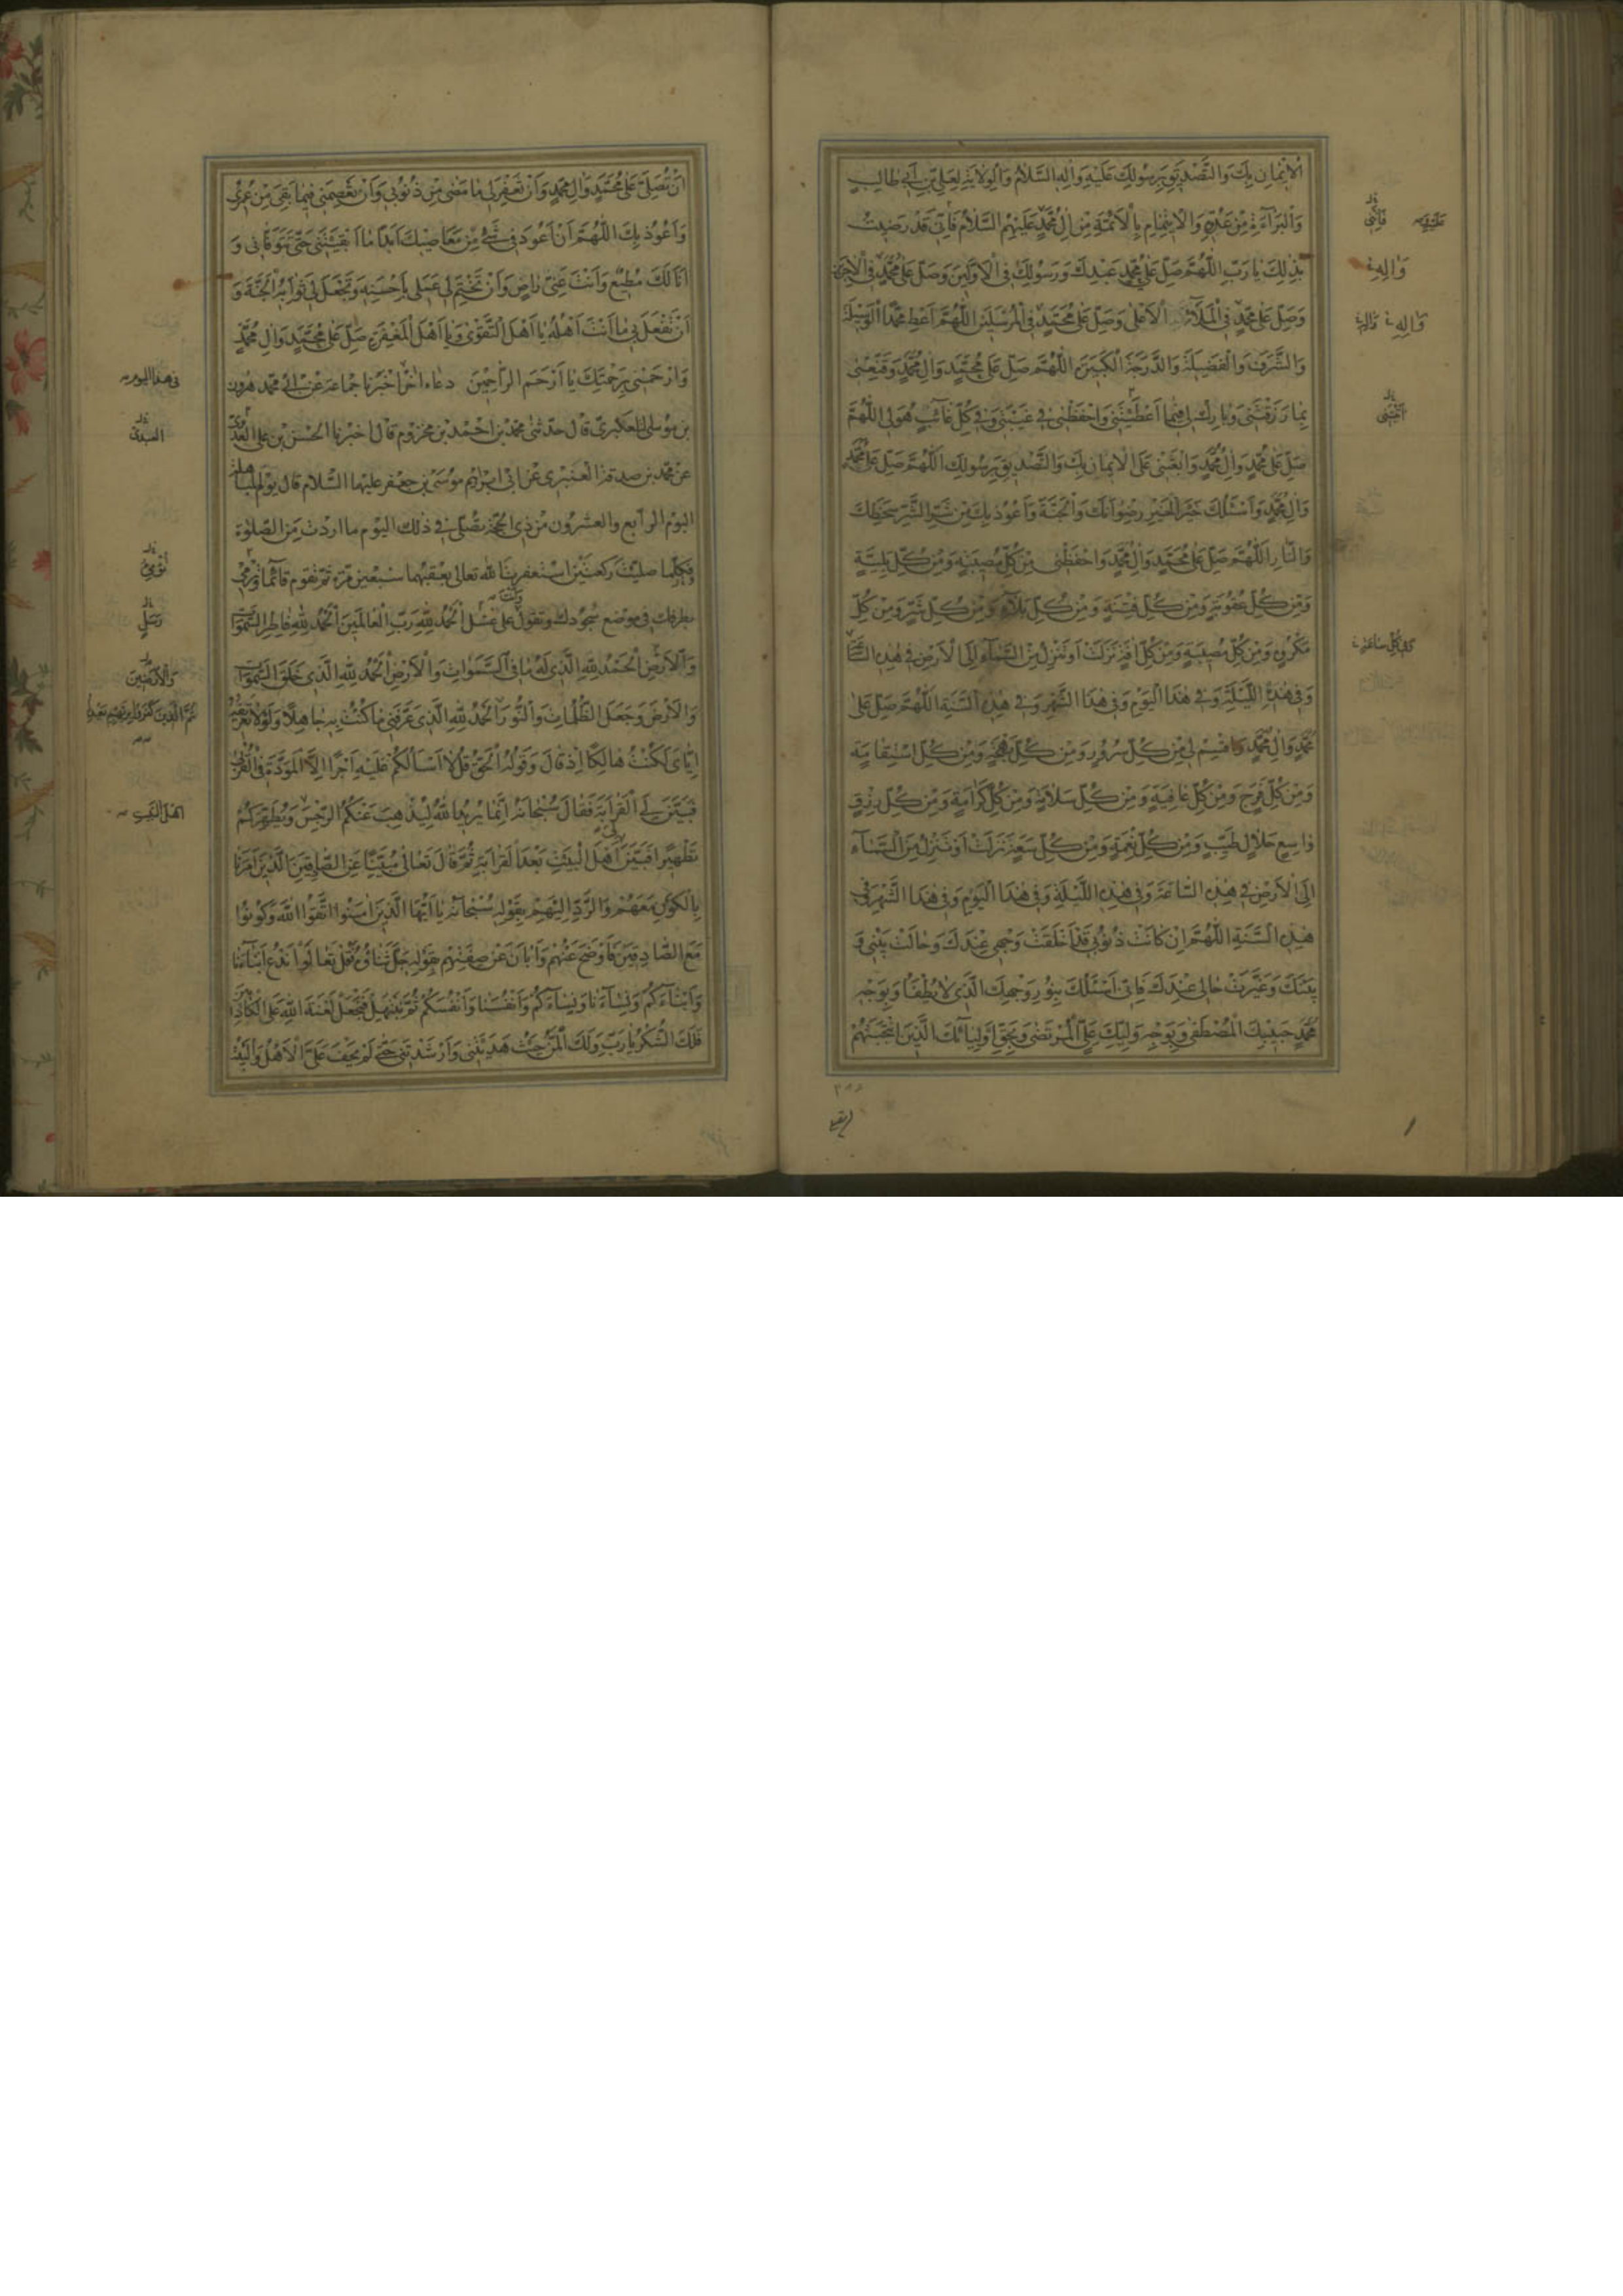 الْإِيمَانِ بِكَ وَالتَّصْدِيقِ بِرَسُولِكَ عَلَيْهِ وَآلِهِ السَّلَامُ وَالْوِلَايَةِ لِعَلِيِّ بْنِ أَبِي طَالِبٍ
وَالْبَرَاءَةِ مِنْ عَدُوِّهِ وَالِايتِمَامِ بِالْأَئِمَّةِ مِنْ آلِ مُحَمَّدٍ عَلَيْهِمُ السَّلَامُ فَإِنِّي قَدْ رَضِيتُ
بِذَلِكَ يَا رَبِّ اللَّهُمَّ صَلِّ عَلَى مُحَمَّدٍ عَبْدِكَ وَرَسُولِكَ فِي الْأَوَّلِينَ وَصَلِّ عَلَى مُحَمَّدٍ فِي الْآخِرِينَ
وَصَلِّ عَلَى مُحَمَّدٍ فِي الْمَلَإِ الْأَعْلَى وَصَلِّ عَلَى مُحَمَّدٍ فِي الْمُرْسَلِينَ اللَّهُمَّ أَعْطِ مُحَمَّدًا الْوَسِيلَةَ
وَالشَّرَفَ وَالْفَضِيلَةَ وَالدَّرَجَةَ الْكَبِيرَةَ اللَّهُمَّ صَلِّ عَلَى مُحَمَّدٍ وَآلِ مُحَمَّدٍ وَقَنِّعْنِي
بِمَا رَزَقْتَنِي وَبَارِكْ لِي فِيمَا أَعْطَيْتَنِي وَاحْفَظْنِي فِي غَيْبَتِي وَفِي كُلِّ غَائِبٍ هُوَ لِي اللَّهُمَّ
صَلِّ عَلَى مُحَمَّدٍ وَآلِ مُحَمَّدٍ وَابْعَثْنِي عَلَى الْإِيمَانِ بِكَ وَالتَّصْدِيقِ بِرَسُولِكَ اللَّهُمَّ صَلِّ عَلَى مُحَمَّدٍ
وَآلِ مُحَمَّدٍ وَأَسْئَلُكَ خَيْرَ الْخَيْرِ رِضْوَانَكَ وَالْجَنَّةَ وَأَعُوذُ بِكَ مِنْ شَرِّ الشَّرِّ سَخَطِكَ
وَالنَّارِ اللَّهُمَّ صَلِّ عَلَى مُحَمَّدٍ وَآلِ مُحَمَّدٍ وَاحْفَظْنِي مِنْ كُلِّ مُصِيبَةٍ وَمِنْ كُلِّ بَلِيَّةٍ
وَمِنْ كُلِّ عُقُوبَةٍ وَمِنْ كُلِّ فِتْنَةٍ وَمِنْ كُلِّ بَلَاءٍ وَمِنْ كُلِّ شَرٍّ وَمِنْ كُلِّ
مَكْرُوهٍ وَمِنْ كُلِّ مُصِيبَةٍ وَمِنْ كُلِّ آفَةٍ نَزَلَتْ أَوْ تَنْزِلُ مِنَ السَّمَاءِ إِلَى الْأَرْضِ فِي هَذِهِ السَّاعَةِ
وَفِي هَذِهِ اللَّيْلَةِ وَفِي هَذَا الْيَوْمِ وَفِي هَذَا الشَّهْرِ وَفِي هَذِهِ السَّنَةِ اللَّهُمَّ صَلِّ عَلَى
مُحَمَّدٍ وَآلِ مُحَمَّدٍ وَاقْسِمْ لِي مِنْ كُلِّ سُرُورٍ وَمِنْ كُلِّ بَهْجَةٍ وَمِنْ كُلِّ اسْتِقَامَةٍ
وَمِنْ كُلِّ فَرَجٍ وَمِنْ كُلِّ عَافِيَةٍ وَمِنْ كُلِّ سَلَامَةٍ وَمِنْ كُلِّ كَرَامَةٍ وَمِنْ كُلِّ رِزْقٍ
وَاسِعٍ حَلَالٍ طَيِّبٍ وَمِنْ كُلِّ نِعْمَةٍ وَمِنْ كُلِّ سَعَةٍ نَزَلَتْ أَوْ تَنْزِلُ مِنَ السَّمَاءِ
إِلَى الْأَرْضِ فِي هَذِهِ السَّاعَةِ وَفِي هَذِهِ اللَّيْلَةِ وَفِي هَذَا الْيَوْمِ وَفِي هَذَا الشَّهْرِ وَفِي
هَذِهِ السَّنَةِ اللَّهُمَّ إِنْ كَانَتْ ذُنُوبِي قَدْ أَخْلَقَتْ وَجْهِي عِنْدَكَ وَحَالَتْ بَيْنِي وَ
بَيْنَكَ وَغَيَّرَتْ حَالِي عِنْدَكَ فَإِنِّي أَسْئَلُكَ بِنُورِ وَجْهِكَ الَّذِي لَا يُطْفَأُ وَبِوَجْهِ
مُحَمَّدٍ حَبِيبِكَ الْمُصْطَفَى وَبِوَجْهِ وَلِيِّكَ عَلِيٍّ الْمُرْتَضَى وَبِحَقِّ أَوْلِيَائِكَ الَّذِينَ انْتَجَبْتَهُمْ
فَإِنِّي
وَآلِهِ
وَآلِهِ وَآلِهِ
أَنْ تُصَلِّيَ عَلَى مُحَمَّدٍ وَآلِ مُحَمَّدٍ وَأَنْ تَغْفِرَ لِي مَا مَضَى مِنْ ذُنُوبِي وَأَنْ تَعْصِمَنِي فِيمَا بَقِيَ مِنْ عُمُرِي
وَأَعُوذُ بِكَ اللَّهُمَّ أَنْ أَعُودَ فِي شَيْءٍ مِنْ مَعَاصِيكَ أَبَدًا مَا أَبْقَيْتَنِي حَتَّى تَتَوَفَّانِي وَ
أَنَا لَكَ مُطِيعٌ وَأَنْتَ عَنِّي رَاضٍ وَأَنْ تَخْتِمَ لِي عَمَلِي بِأَحْسَنِهِ وَتَجْعَلَ لِي ثَوَابَهُ الْجَنَّةَ وَ
أَنْ تَفْعَلَ بِي مَا أَنْتَ أَهْلُهُ يَا أَهْلَ التَّقْوَى وَيَا أَهْلَ الْمَغْفِرَةِ صَلِّ عَلَى مُحَمَّدٍ وَآلِ مُحَمَّدٍ
وَارْحَمْنِي بِرَحْمَتِكَ يَا أَرْحَمَ الرَّاحِمِينَ دعاء اخر اخبرنا جماعة عن ابي محمد هرون
بن موسى التلعكبري قال حدثني محمد بن احمد بن مخزوم قال اخبرنا الحسن بن علي العدوي
عن محمد بن صدقة العنبري عن ابي ابراهيم موسى بن جعفر عليهما السلام قال يوم المباهلة
اليوم الرابع والعشرون من ذي الحجة تصلي في ذلك اليوم ما اردت من الصلوة
فكلما صليت ركعتين استغفرت الله تعالى بعقبهما سبعين مرة ثم تقوم قائما وترمي
بطرفك في موضع سجودك وتقول على غسل اَلْحَمْدُ لِلَّهِ رَبِّ الْعَالَمِينَ اَلْحَمْدُ لِلَّهِ فَاطِرِ السَّمَوَاتِ
وَالْأَرْضِ اَلْحَمْدُ لِلَّهِ الَّذِي لَهُ مَا فِي السَّمَوَاتِ وَالْأَرْضِ اَلْحَمْدُ لِلَّهِ الَّذِي خَلَقَ السَّمَوَاتِ
وَالْأَرْضَ وَجَعَلَ الظُّلُمَاتِ وَالنُّورَ اَلْحَمْدُ لِلَّهِ الَّذِي عَرَّفَنِي مَا كُنْتُ بِهِ جَاهِلًا وَلَوْلَا تَعْرِيفُهُ
إِيَّايَ لَكُنْتُ هَالِكًا إِذْ قَالَ وَقَوْلُهُ الْحَقُّ قُلْ لَا أَسْأَلُكُمْ عَلَيْهِ أَجْرًا إِلَّا الْمَوَدَّةَ فِي الْقُرْبَى
فَبَيَّنَ لِيَ الْقَرَابَةَ فَقَالَ سُبْحَانَهُ إِنَّمَا يُرِيدُ اللَّهُ لِيُذْهِبَ عَنْكُمُ الرِّجْسَ وَيُطَهِّرَكُمْ
تَطْهِيرًا فَبَيَّنَ أَهْلَ الْبَيْتِ بَعْدَ الْقَرَابَةِ ثُمَّ قَالَ تَعَالَى مُبَيِّنًا عَنِ الصَّادِقِينَ الَّذِينَ أَمَرَنَا
بِالْكَوْنِ مَعَهُمْ وَالرَّدِّ إِلَيْهِمْ بِقَوْلِهِ سُبْحَانَهُ يَا أَيُّهَا الَّذِينَ آمَنُوا اتَّقُوا اللَّهَ وَكُونُوا
مَعَ الصَّادِقِينَ فَأَوْضَحَ عَنْهُمْ وَأَبَانَ عَنْ صِفَتِهِمْ بِقَوْلِهِ جَلَّ ثَنَاؤُهُ فَقُلْ تَعَالَوْا نَدْعُ أَبْنَاءَنَا
وَأَبْنَاءَكُمْ وَنِسَاءَنَا وَنِسَاءَكُمْ وَأَنْفُسَنَا وَأَنْفُسَكُمْ ثُمَّ نَبْتَهِلْ فَنَجْعَلْ لَعْنَةَ اللَّهِ عَلَى الْكَاذِبِينَ
فَلَكَ الشُّكْرُ يَا رَبِّ وَلَكَ الْمَنُّ حَيْثُ هَدَيْتَنِي وَأَرْشَدْتَنِي حَتَّى لَمْ يَخْفَ عَلَيَّ الْأَهْلُ وَالْبَيْتُ
في هذا اليوم
وَالْأَرَضِينَ
اهل البيت